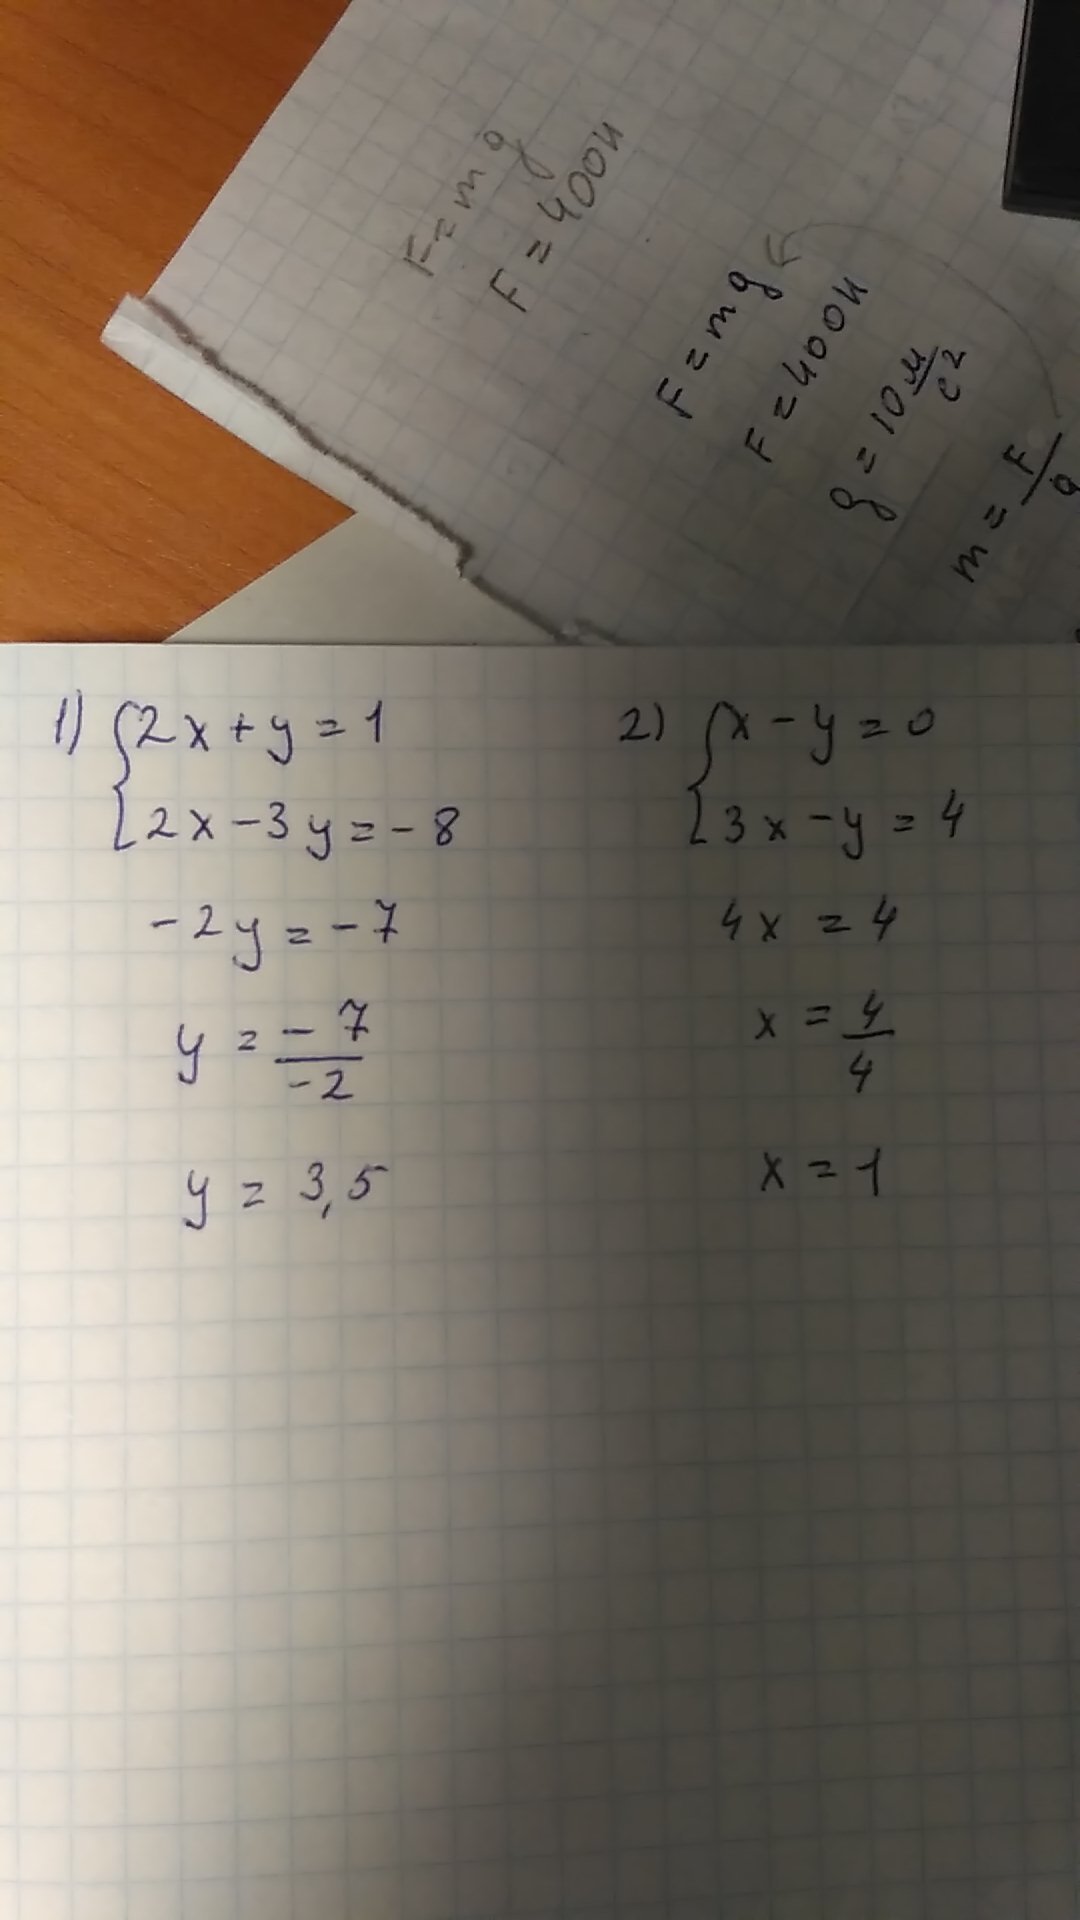 F = mg
F = 400н
F = mg
F = 400н
g = 10 м/с²
m = F/g
1) {2x + y = 1
{2x - 3y = - 8
- 2y = - 7
y = - 7/-2
y = 3,5
2) {x - y = 0
{3x - y = 4
4x = 4
x = 4/4
x = 1